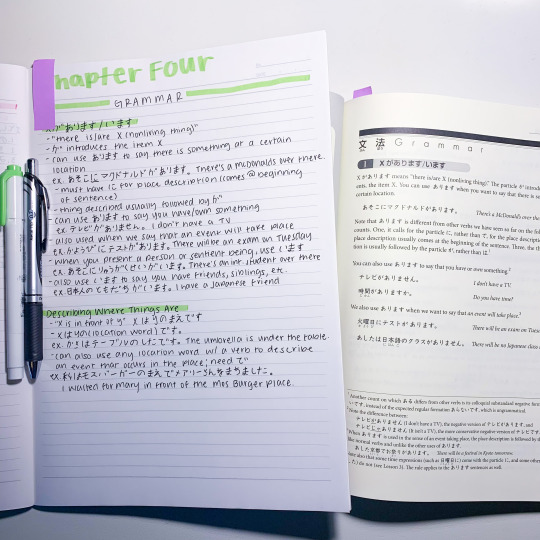 Chapter Four
GRAMMAR
Xがあります/います
-"there is/are X (nonliving thing)"
-が introduces the item X
-can use あります to say there is something at a certain
location
ex. あそこにマクドナルドがあります。There's a McDonalds over there.
-must have に for place description (comes @ beginning
of sentence)
-thing described usually followed by が
-can use あります to say you have/own something
ex. テレビがありません。I don't have a TV
-also used when we say that an event will take place
ex. かようびにテストがあります。There will be an exam on Tuesday
-when you present a person or sentient being, use います
ex. あそこにりゅうがくせいがいます。There's an int. student over there
-also use います to say you have friends, siblings, etc.
ex. 日本人のともだちがいます。I have a Japanese friend
Describing Where Things Are
-"X is in front of Y" XはYのまえです
-XはYの(location word)です。
ex. かさはテーブルのしたです。The umbrella is under the table.
-can also use any location word w/ a verb to describe
an event that occurs in the place; need で
ex. 私はモスバーガーのまえでメアリーさんをまちました。
I waited for Mary in front of the Mos Burger place.
文法 Grammar
1 Xがあります/います
Xがあります means "there is/are X (nonliving thing)." The particle が
ents, the item X. You can use あります when you want to say that there is
certain location.
あそこにマクドナルドがあります。
There's a McDonald's over
Note that あります is different from other verbs we have seen so far on the
counts. One, it calls for the particle に, rather than で, for the place
place description usually comes at the beginning of the sentence. Three, the
tion is usually followed by the particle が, rather than は.
You can also use あります to say that you have or own something.
テレビがありません。
I don't have a TV.
時間がありますか。
Do you have time?
We also use あります when we want to say that an event will take place.
火曜日にテストがあります。
There will be an exam on
あしたは日本語のクラスがありません。
There will be no Japanese class